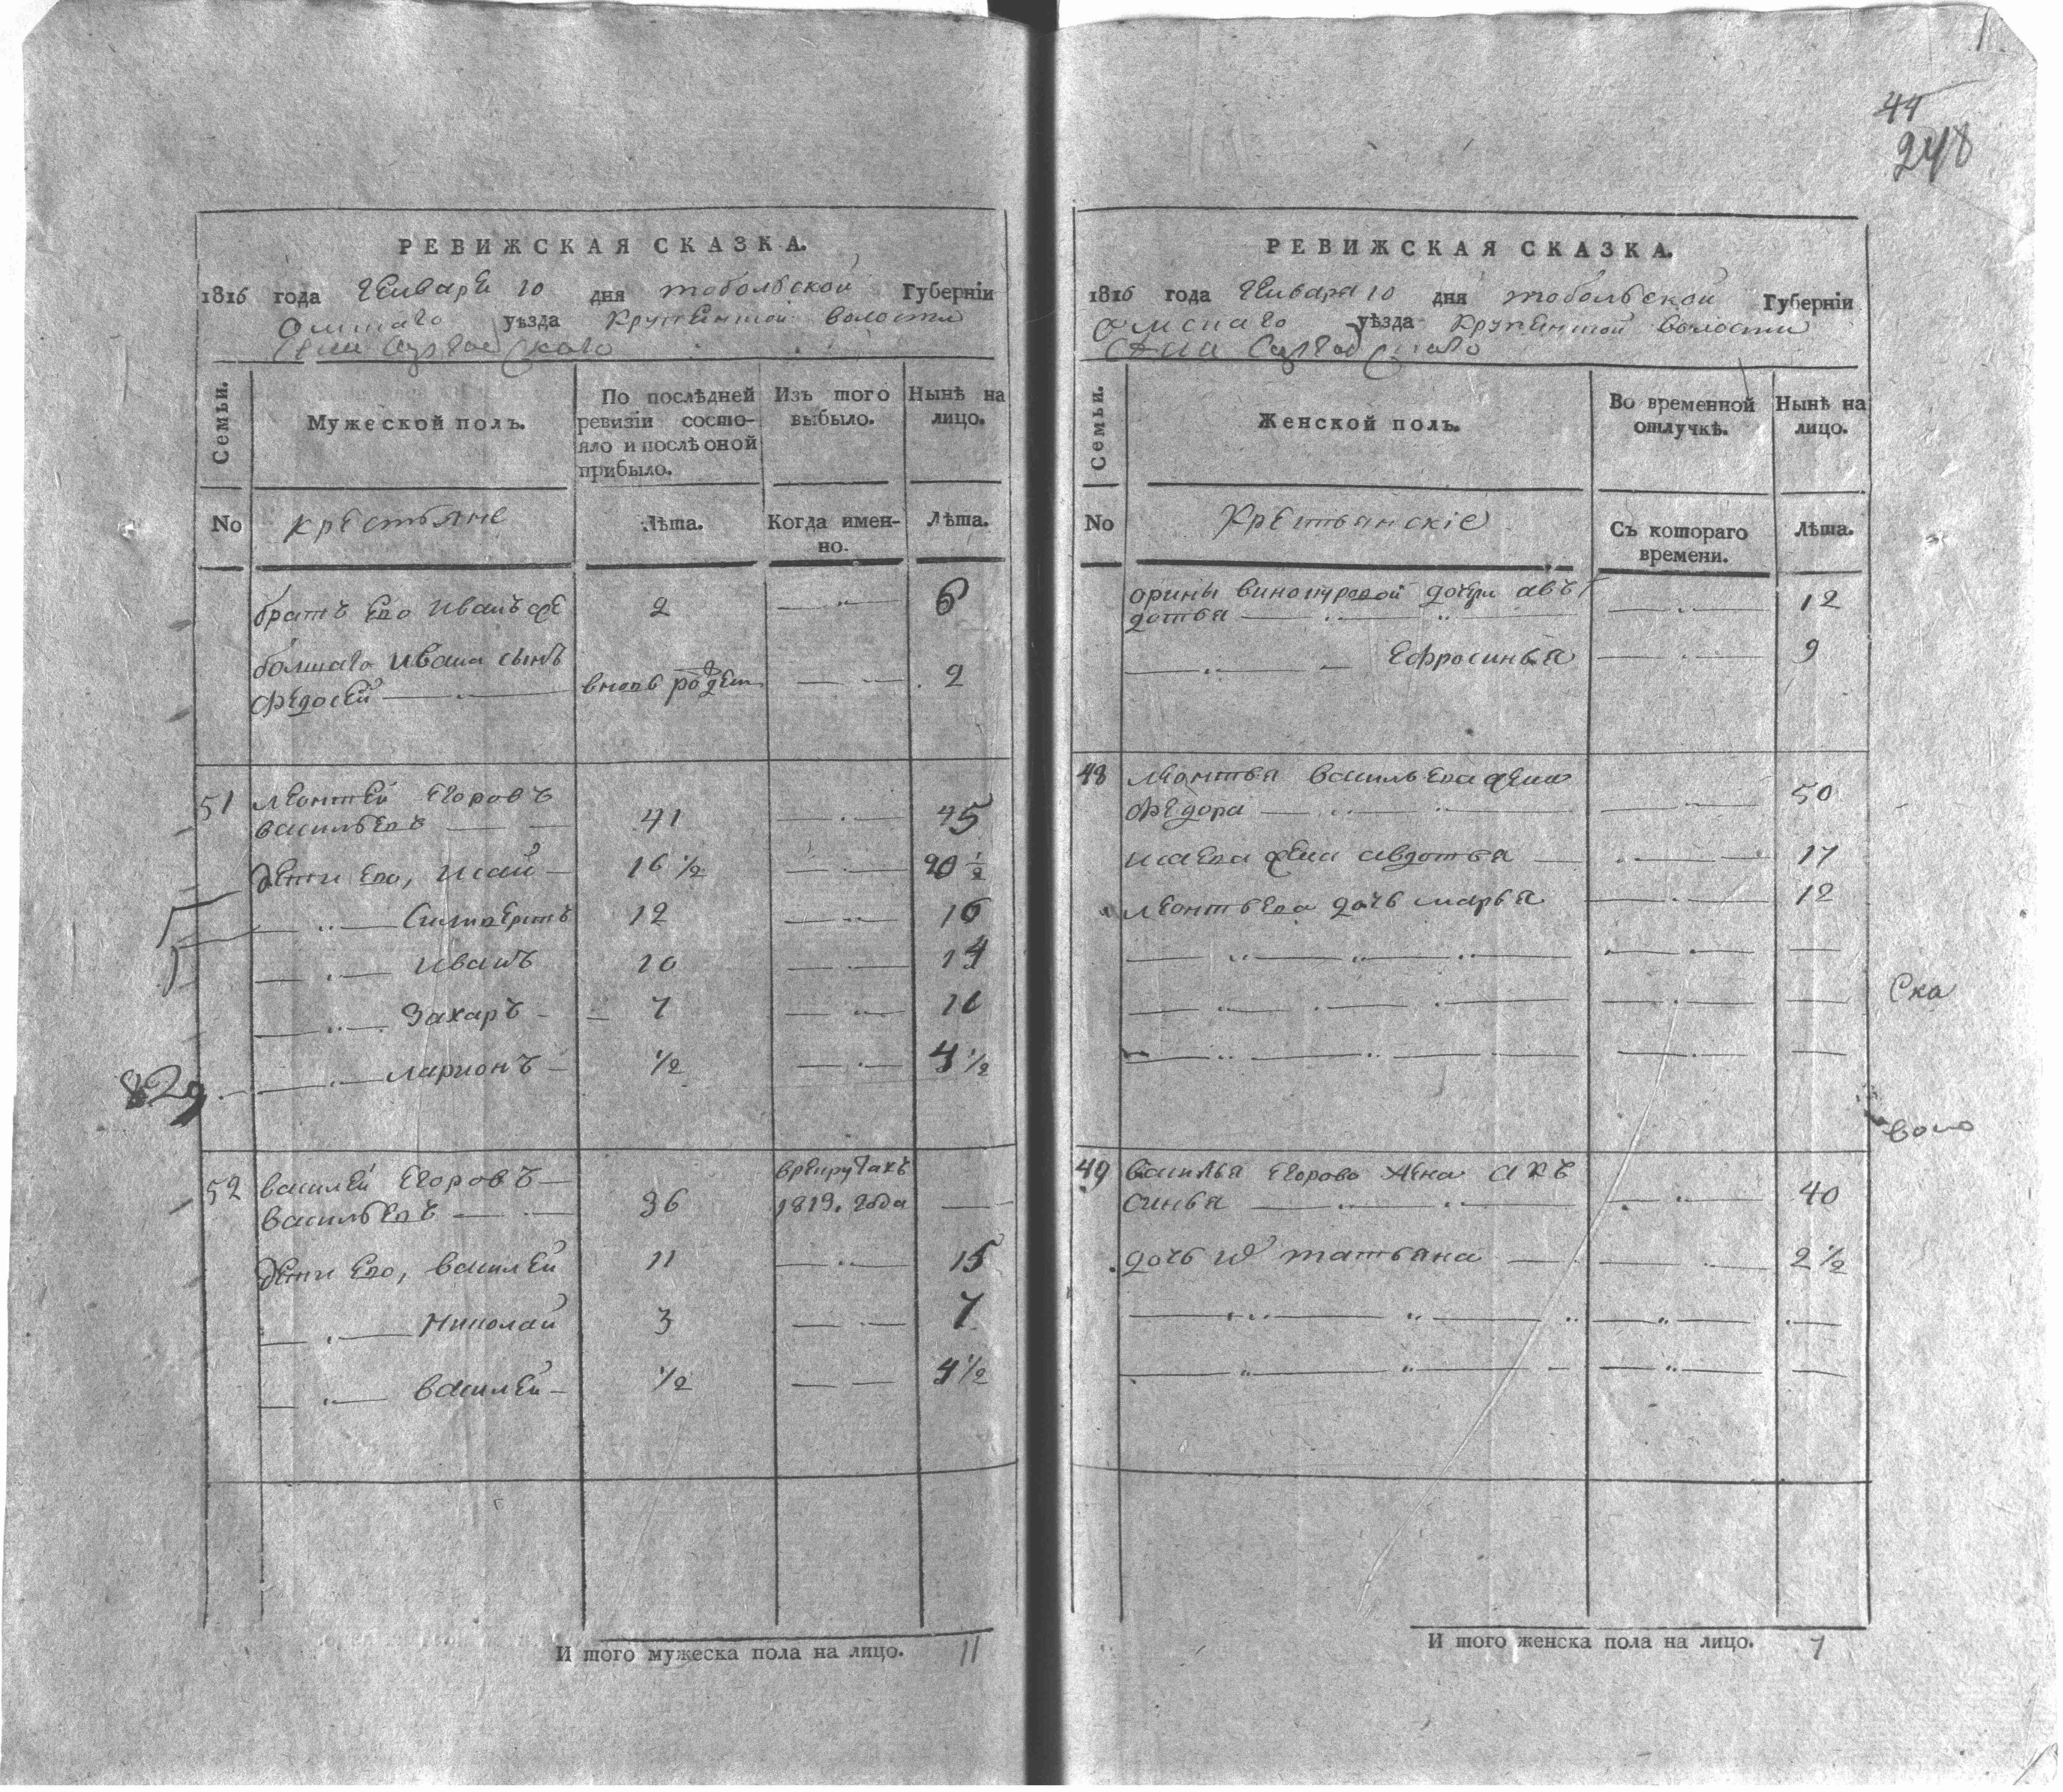 44
248
РЕВИЖСКАЯ СКАЗКА.
1816 года Генваря 10 дня тобольской Губерніи
Омскаго уѣзда Крупенской волости
Села
Семьи.
Мужеской полъ.
По послѣдней ревизіи состо-
яло и послѣ оной прибыло.
Изъ того выбыло.
Нынѣ на лицо.
No
крестьяне
Лѣта.
Когда имен-
но.
Лѣта.
братъ Его Иванъ же 2 6
болшаго Ивана сынъ
Федосей вновь рожден 2
51 Леонтей Егоровъ
васильевъ 41 45
дети Его, Исай 16 ½ 20 ½
Силиверстъ 12 16
Иванъ 10 14
Захаръ 7 11
Ларионъ ½ 4 ½
829
52 василей Егоровъ
васильевъ 36 врекрутахъ 1813. года
дети Его, василей 11 15
Николай 3 7
василей ½ 4 ½
И того мужеска пола на лицо. 11
РЕВИЖСКАЯ СКАЗКА.
1816 года Генваря 10 дня тобольской Губерніи
Омскаго уѣзда Крупенской волости
Села
Семьи.
Женской полъ.
Во временной
отлучкѣ.
Нынѣ на
лицо.
No
Крестьянскіе
Съ котораго
времени.
Лѣта.
орины винокуровой дочери авъ
дотья 12
Ефросинья 9
48 Леонтья васильева жена
Федора 50
исаева жена авдотья 17
Леонтьева дочь марья 12
Ска
49 василья Егорова жена Акъ
синья 40
дочь татьяна 2 ½
И того женска пола на лицо. 7